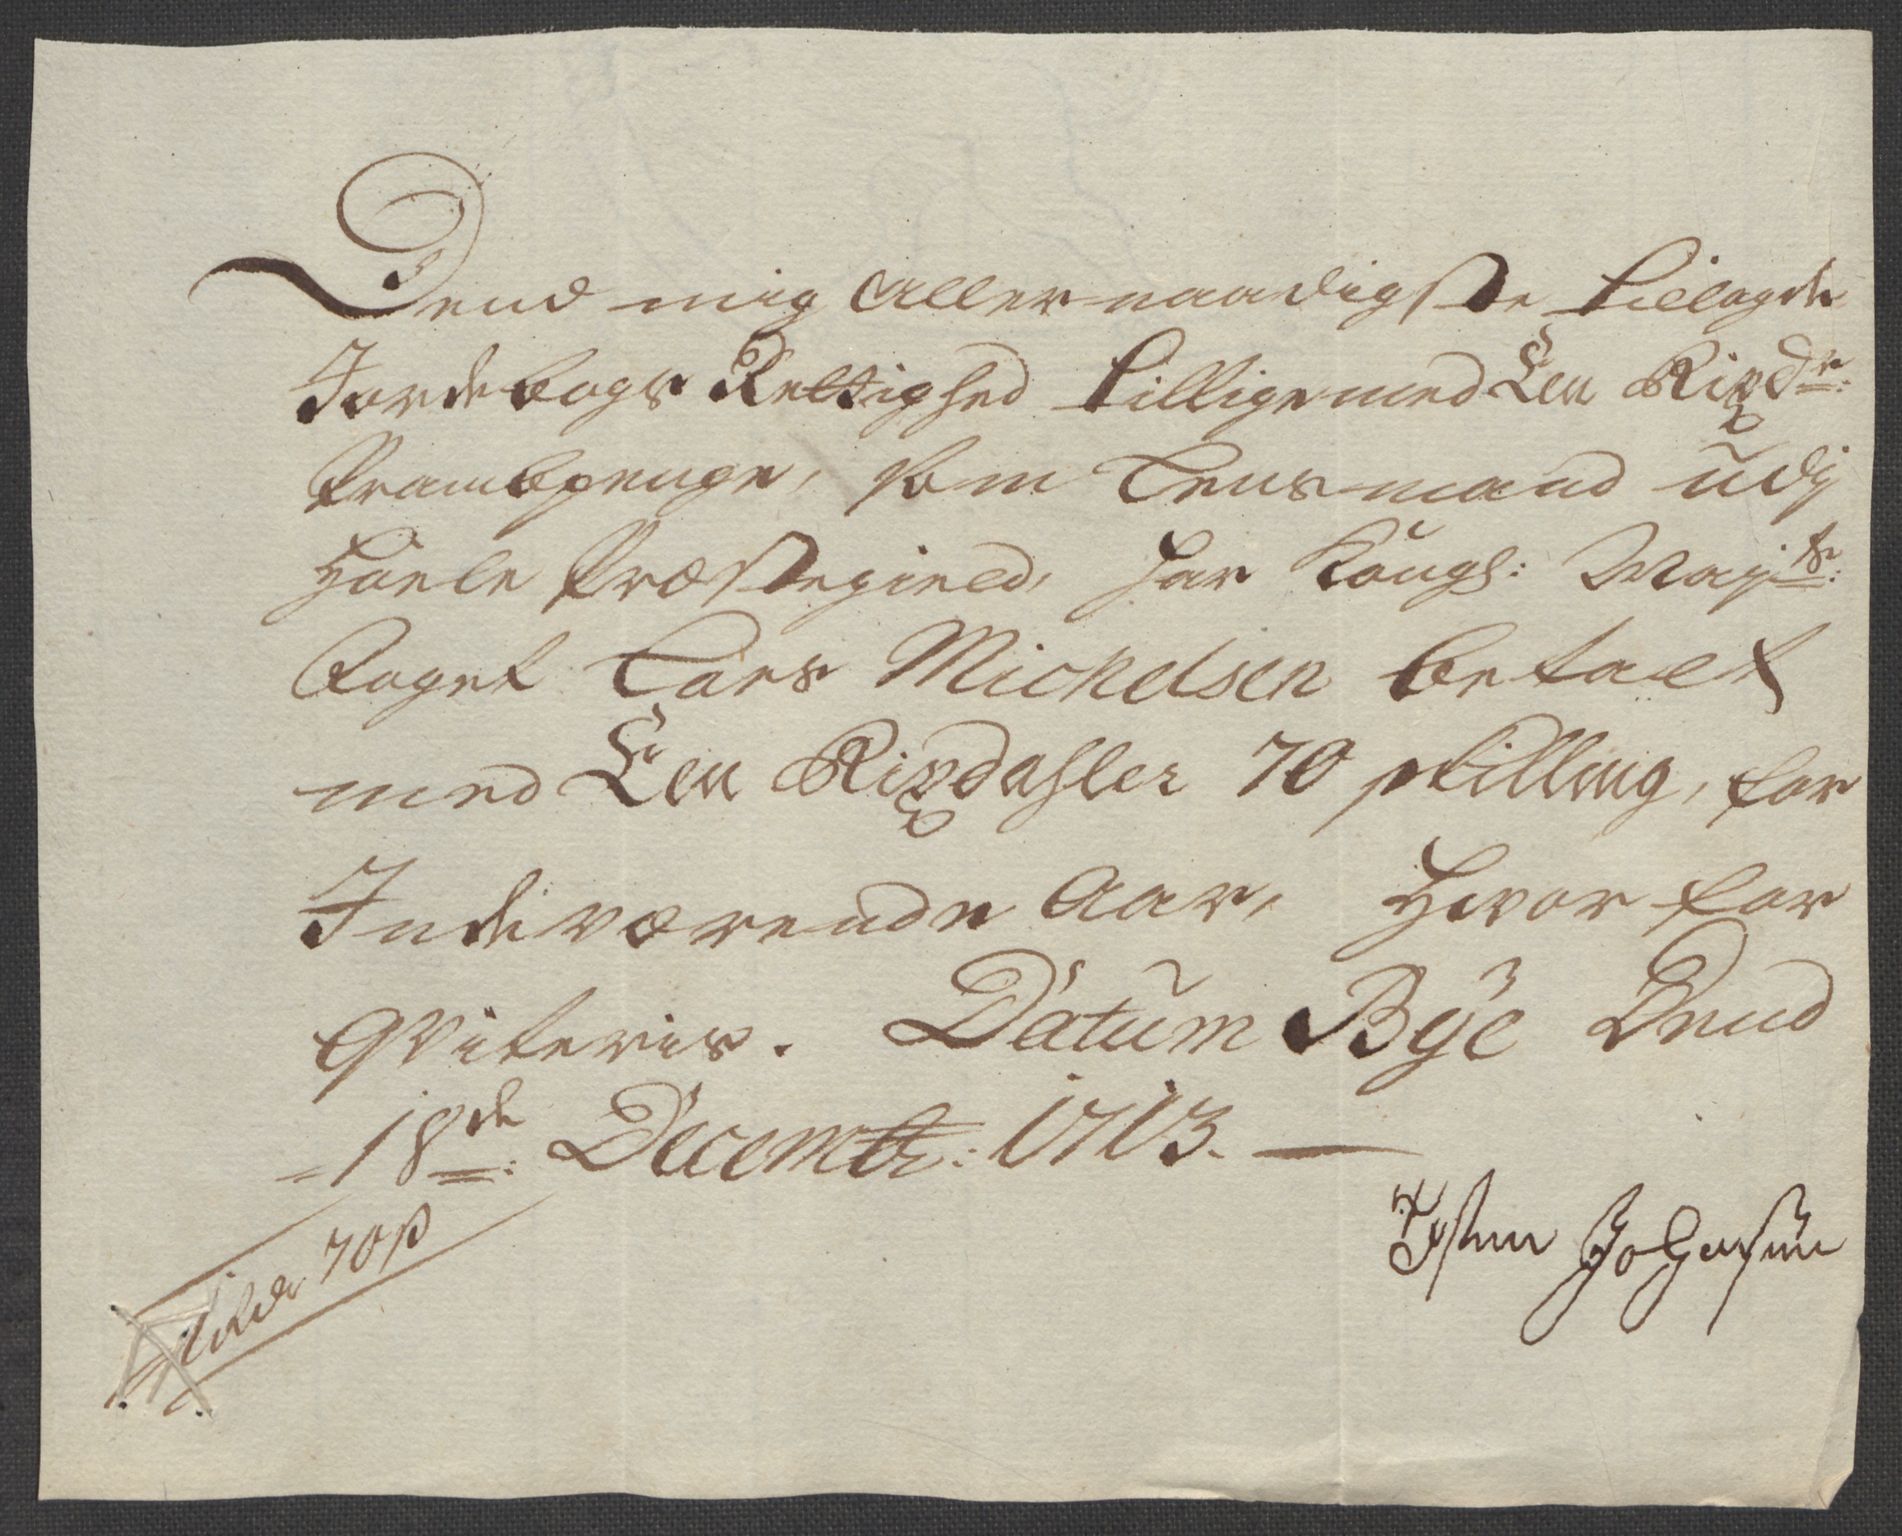 Dend mig Allernaadigste tillagde
Jordebogs Rettighed tillige med Een Rixdr:
Prambpenge, som Lensmand udj
Høele Præstegield, har Kongl: Mayts:
Foget Lars Michelsen betalt
med Een Rixdahler 70 skilling, for
Indeværende Aar, Hvorfor
Qviteris. Datum Bÿe Dend
18de: Decembr: 1713.
Johansen
70 s